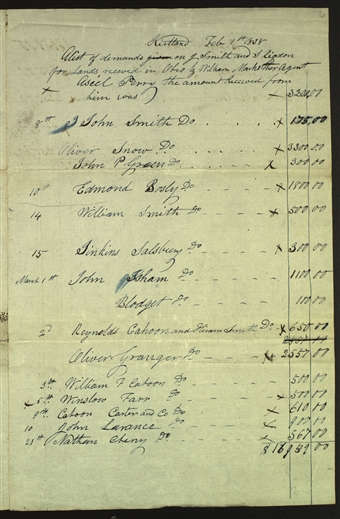 Kirtland Feb 7th 1838
A list of demands given on J Smith and S Rigdon
for lands received in Ohio by William Marks their Agent
Aseel Perry the amount received from
him was x 3200.00
8th John Smith Do x 175,00
Oliver Snow Do x 3300.00
John P. Green Do x 300.00
10 Edmond Bosly Do x 1800,00
14 William Smith Do x 500,00
15 Jinkins Salsbury Do x 300,00
March 1st John Isham Do 1100,00
Blodget Do 100,00
2d Reynolds Cahoon and Hiram Smith Do x 650,00
Oliver Granger Do x 2557,00
3th William F Cahoon Do 500,00
x 5th Winslow Farr Do x 500,00
8th Cahoon Carter and Co Do x 610,00
10 John Larance Do x 900,00
21st Nathan Cheny Do x 567,00